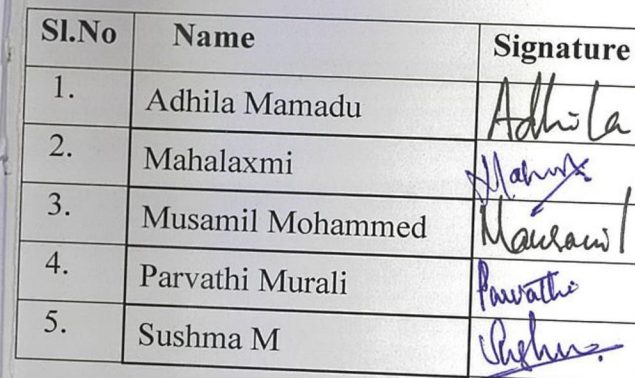 Sl.No Name Signature
1. Adhila Mamadu Adhila
2. Mahalaxmi
3. Musamil Mohammed
4. Parvathi Murali Parvathi
5. Sushma M